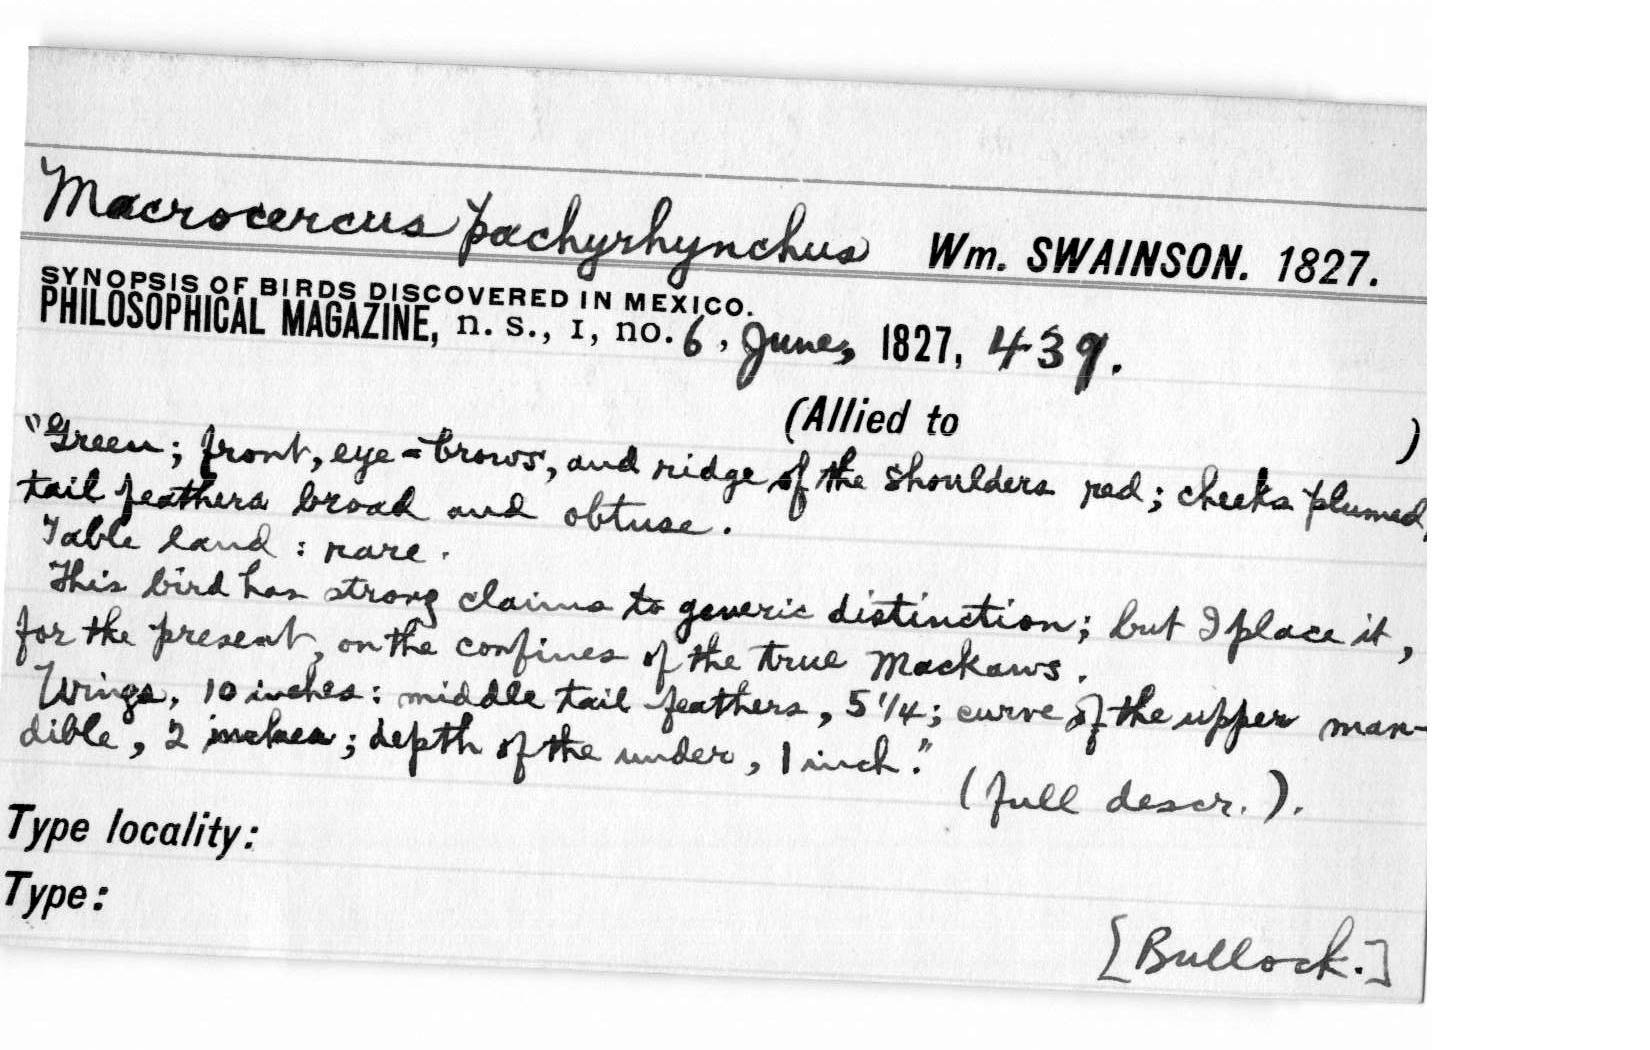 Macrocercus pachyrhynchus Wm. SWAINSON. 1827.
SYNOPSIS OF BIRDS DISCOVERED IN MEXICO.
PHILOSOPHICAL MAGAZINE, n. s., I, no. 6, June, 1827, 439.
(Allied to )
"Green; front, eye=brows, and ridge of the shoulders red; cheeks plumed,
tail feathers broad and obtuse.
Table land: rare.
This bird has strong claims to generic distinction; but I place it,
for the present, on the confines of the true Mackaws.
Wings, 10 inches: middle tail feathers, 5 1/4; curve of the upper man-
dible, 2 inches; depth of the under, 1 inch."
(full descr.).
Type locality:
Type:
[Bullock.]